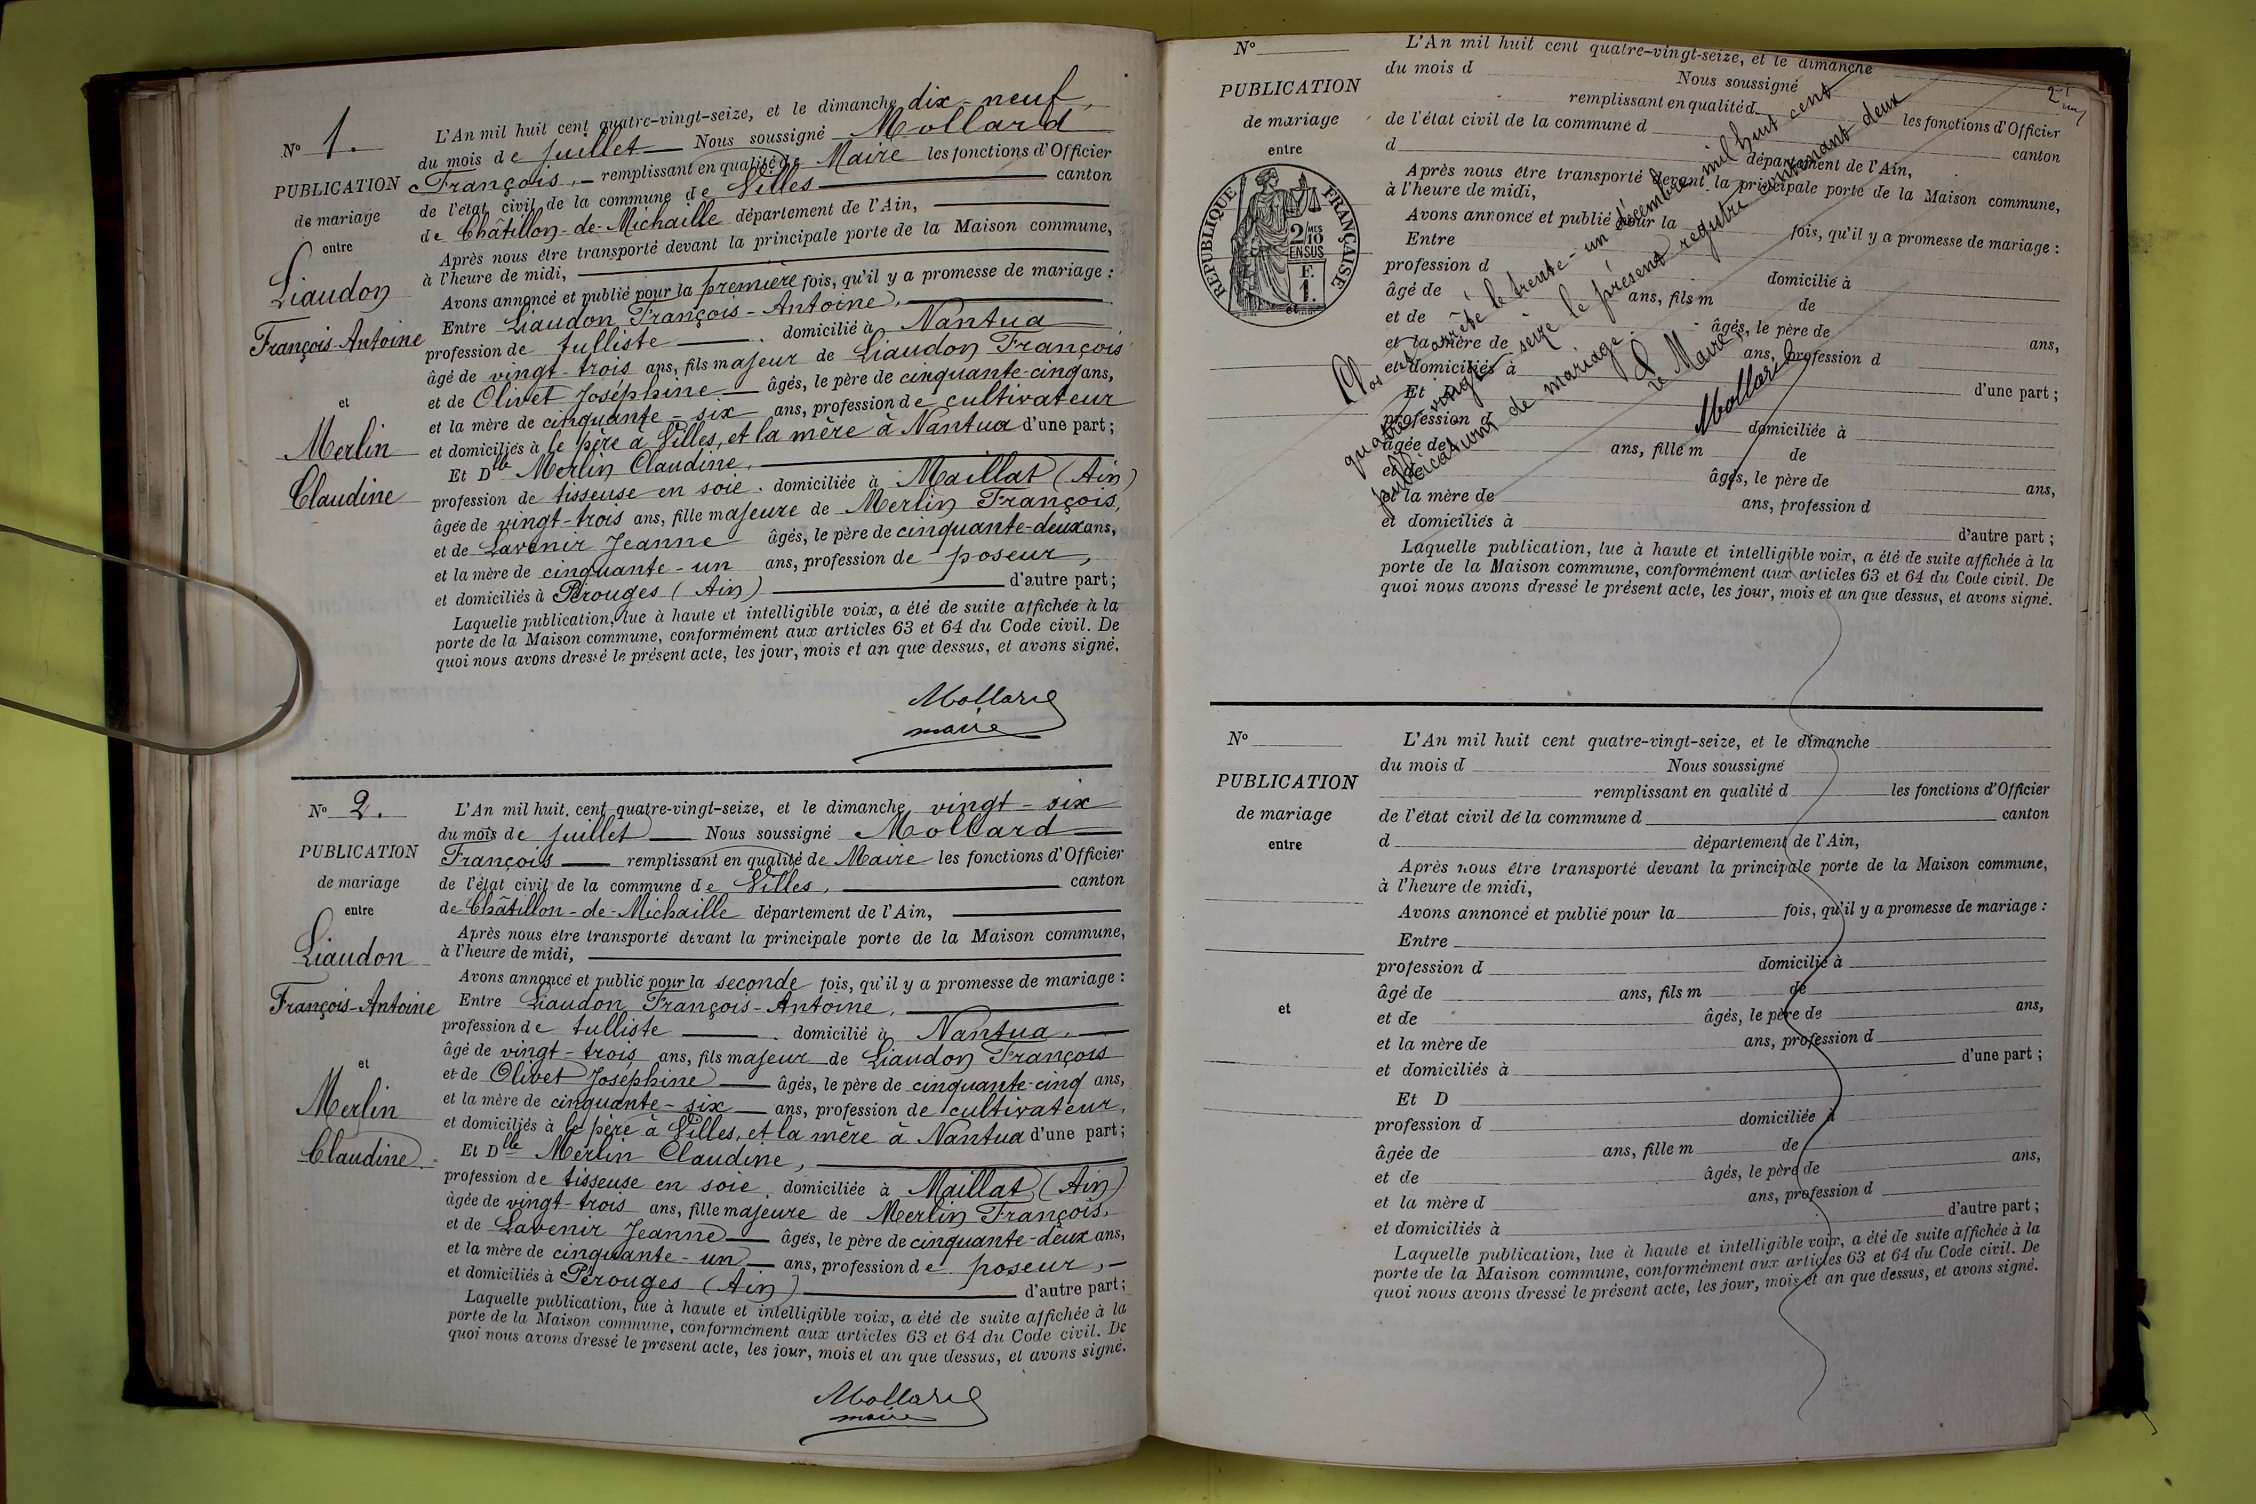 N° 1.
PUBLICATION
de mariage
entre
Liaudon
François-Antoine
et
Merlin
Claudine
L'An mil huit cent quatre-vingt-seize, et le dimanche dix-neuf,
du mois de juillet Nous soussigné Mollard
François, remplissant en qualité de Maire les fonctions d'Officier
de l'état civil de la commune de Villes canton
de Châtillon-de-Michaille département de l'Ain,
Après nous être transporté devant la principale porte de la Maison commune,
à l'heure de midi,
Avons annoncé et publié pour la première fois, qu'il y a promesse de mariage :
Entre Liaudon François-Antoine,
profession de tulliste domicilié à Nantua
âgé de vingt-trois ans, fils majeur de Liaudon François
et de Olivet Joséphine âgés, le père de cinquante-cinq ans,
et la mère de cinquante-six ans, profession de cultivateur
et domiciliés à le père à Villes, et la mère à Nantua d'une part ;
Et Dlle Merlin Claudine,
profession de tisseuse en soie. domiciliée à Maillat (Ain)
âgée de vingt-trois ans, fille majeure de Merlin François,
et de Lavenir Jeanne âgés, le père de cinquante-deux ans,
et la mère de cinquante-un ans, profession de poseur,
et domiciliés à Pérouges (Ain) d'autre part ;
Laquelle publication, lue à haute et intelligible voix, a été de suite affichée à la
porte de la Maison commune, conformément aux articles 63 et 64 du Code civil. De
quoi nous avons dressé le présent acte, les jour, mois et an que dessus, et avons signé.
Mollard
maire
N° 2.
PUBLICATION
de mariage
entre
Liaudon
François-Antoine
et
Merlin
Claudine
L'An mil huit cent quatre-vingt-seize, et le dimanche vingt-six
du mois de juillet Nous soussigné Mollard
François remplissant en qualité de Maire les fonctions d'Officier
de l'état civil de la commune de Villes, canton
de Châtillon-de-Michaille département de l'Ain,
Après nous être transporté devant la principale porte de la Maison commune,
à l'heure de midi,
Avons annoncé et publié pour la seconde fois, qu'il y a promesse de mariage :
Entre Liaudon François-Antoine,
profession de tulliste domicilié à Nantua,
âgé de vingt-trois ans, fils majeur de Liaudon François
et de Olivet Joséphine âgés, le père de cinquante-cinq ans,
et la mère de cinquante-six ans, profession de cultivateur,
et domiciliés à le père à Villes, et la mère à Nantua d'une part ;
Et Dlle Merlin Claudine,
profession de tisseuse en soie, domiciliée à Maillat (Ain)
âgée de vingt-trois ans, fille majeure de Merlin François,
et de Lavenir Jeanne âgés, le père de cinquante-deux ans,
et la mère de cinquante-un ans, profession de poseur,
et domiciliés à Pérouges (Ain) d'autre part ;
Laquelle publication, lue à haute et intelligible voix, a été de suite affichée à la
porte de la Maison commune, conformément aux articles 63 et 64 du Code civil. De
quoi nous avons dressé le présent acte, les jour, mois et an que dessus, et avons signé.
Mollard
maire
N°
PUBLICATION
de mariage
entre
RÉPUBLIQUE FRANÇAISE
2/10MES
EN SUS
F.
1.
et
L'An mil huit cent quatre-vingt-seize, et le dimanche
du mois d Nous soussigné
remplissant en qualité d les fonctions d'Officier
de l'état civil de la commune d canton
d département de l'Ain,
Après nous être transporté devant la principale porte de la Maison commune,
à l'heure de midi,
Avons annoncé et publié pour la fois, qu'il y a promesse de mariage :
Entre
profession d domicilié à
âgé de ans, fils m de
et de âgés, le père de ans,
et la mère de ans, profession d
et domiciliés à d'une part ;
Et
profession d domiciliée à
âgée de ans, fille m de
et de âgés, le père de ans,
et la mère de ans, profession d
et domiciliés à d'autre part ;
Laquelle publication, lue à haute et intelligible voix, a été de suite affichée à la
porte de la Maison commune, conformément aux articles 63 et 64 du Code civil. De
quoi nous avons dressé le présent acte, les jour, mois et an que dessus, et avons signé.
Clos et arrêté le trente-un décembre mil huit cent
quatre-vingt-seize le présent registre contenant deux
publications de mariage
Le Maire
Mollard
N°
PUBLICATION
de mariage
entre
et
L'An mil huit cent quatre-vingt-seize, et le dimanche
du mois d Nous soussigné
remplissant en qualité d les fonctions d'Officier
de l'état civil de la commune d canton
d département de l'Ain,
Après nous être transporté devant la principale porte de la Maison commune,
à l'heure de midi,
Avons annoncé et publié pour la fois, qu'il y a promesse de mariage :
Entre
profession d domicilié à
âgé de ans, fils m de
et de âgés, le père de ans,
et la mère de ans, profession d
et domiciliés à d'une part ;
Et D
profession d domiciliée à
âgée de ans, fille m de
et de âgés, le père de ans,
et la mère d ans, profession d
et domiciliés à d'autre part ;
Laquelle publication, lue à haute et intelligible voix, a été de suite affichée à la
porte de la Maison commune, conformément aux articles 63 et 64 du Code civil. De
quoi nous avons dressé le présent acte, les jour, mois et an que dessus, et avons signé.